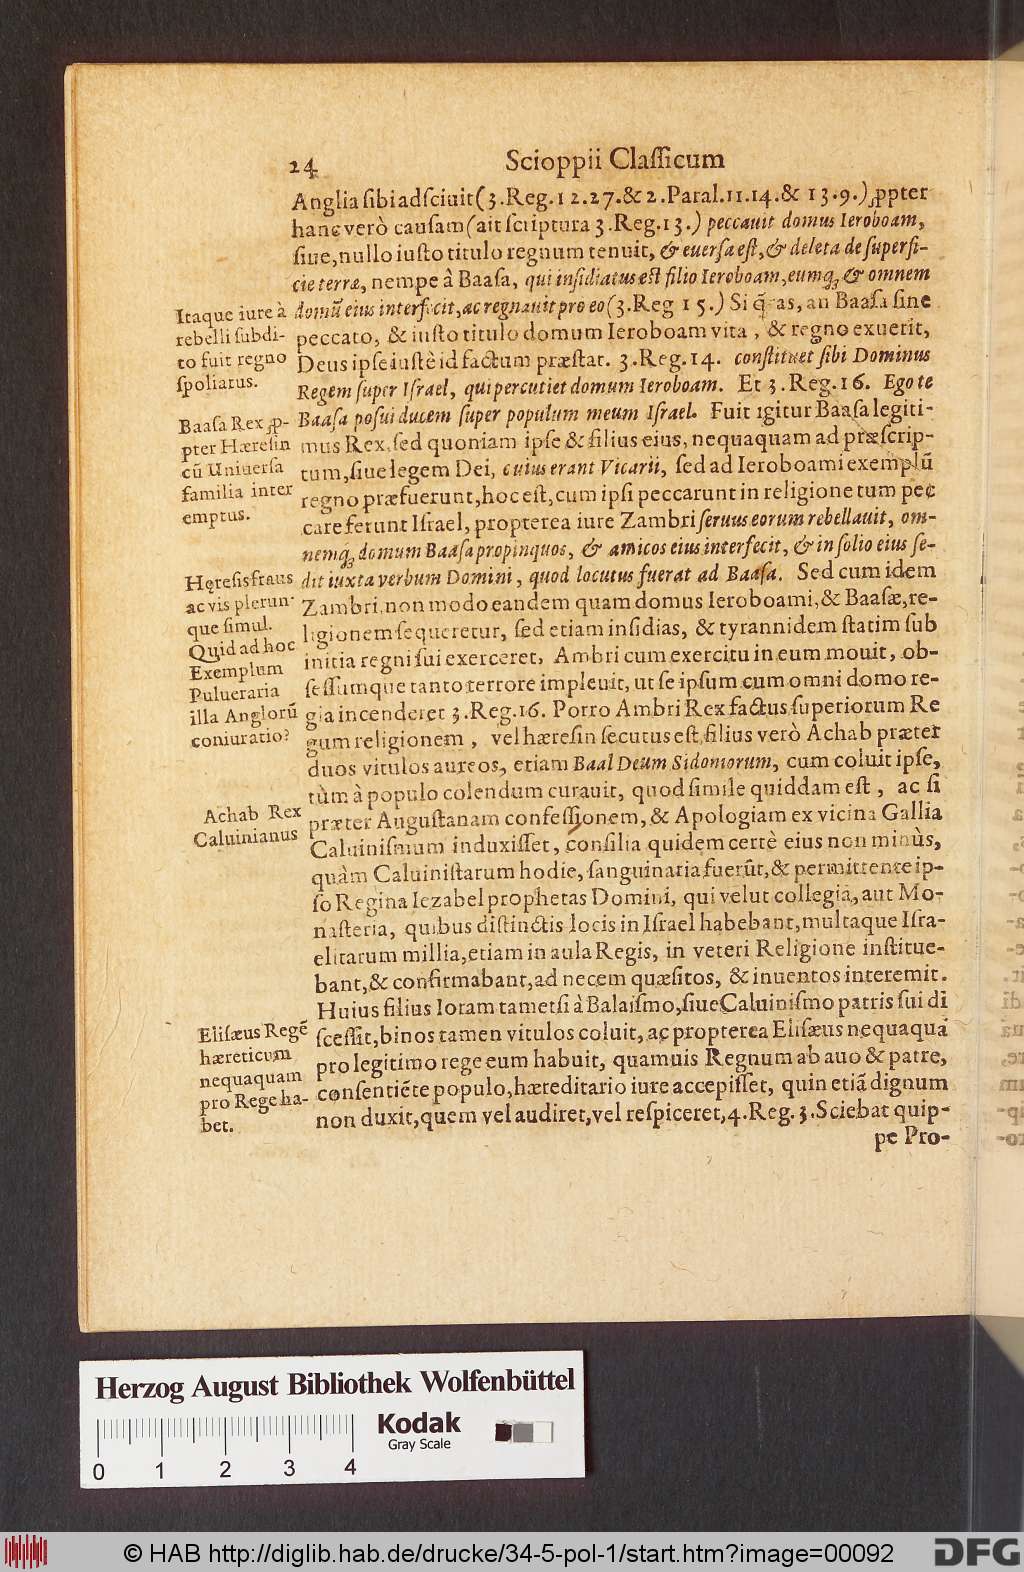 24 Scioppii Classicum
Anglia sibi adsciuit (3. Reg. 12. 27. & 2. Paral. 11. 14. & 13. 9.) ꝓpter
hanc verò causam (ait scriptura 3. Reg. 13.) peccauit domus Ieroboam,
siue, nullo iusto titulo regnum tenuit, & euersa est, & deleta de superfi-
cie terræ, nempe â Baasa, qui insidiatus est filio Ieroboam, eumq́ȝ & omnem
domũ eius interfecit, ac regnauit pro eo (3. Reg 15.) Si q̃ras, an Baasa sine
peccato, & iusto titulo domum Ieroboam vita, & regno exuerit,
Deus ipse iustè id factum præstat. 3. Reg. 14. constituet sibi Dominus
Regem super Israel, qui percutiet domum Ieroboam. Et 3. Reg. 16. Ego te
Baasa posui ducem super populum meum Israel. Fuit igitur Baasa legiti-
mus Rex, sed quoniam ipse & filius eius, nequaquam ad præscrip-
tum, siue legem Dei, cuius erant Vicarii, sed ad Ieroboami exemplũ
regno præfuerunt, hoc est, cum ipsi peccarunt in religione tum pec
care ferunt Israel, propterea iure Zambri seruus eorum rebellauit, om-
nemq́ȝ domum Baasa propinquos, & amicos eius interfecit, & in solio eius se-
dit iuxta verbum Domini, quod locutus fuerat ad Baasa. Sed cum idem
Zambri, non modo eandem quam domus Ieroboami, & Baasæ, re-
ligionem sequeretur, sed etiam insidias, & tyrannidem statim sub
initia regni sui exerceret, Ambri cum exercitu in eum mouit, ob-
sessumque tanto terrore impleuit, ut se ipsum cum omni domo re-
gia incenderet 3. Reg. 16. Porro Ambri Rex factus superiorum Re
gum religionem, vel hæresin secutus est, filius verò Achab præter
duos vitulos aureos, etiam Baal Deum Sidoniorum, cum coluit ipse,
tùm à populo colendum curauit, quod simile quiddam est, ac si
præter Augustanam confessionem, & Apologiam ex vicina Gallia
Caluinismum induxisset, consilia quidem certè eius non minùs,
quàm Caluinistarum hodie, sanguinaria fuerũt, & permittente ip-
so Regina Iezabel prophetas Domini, qui velut collegia, aut Mo-
nasteria, quibus distinctis locis in Israel habebant, multaque Isra-
elitarum millia, etiam in aula Regis, in veteri Religione institue-
bant, & confirmabant, ad necem quæsitos, & inuentos interemit.
Huius filius Ioram tametsi à Balaismo, siue Caluinismo patris sui di
scessit, binos tamen vitulos coluit, ac propterea Elisæus nequaquã
pro legitimo rege eum habuit, quamuis Regnum ab auo & patre,
consentiẽte populo, hæreditario iure accepisset, quin etiã dignum
non duxit, quem vel audiret, vel respiceret, 4. Reg. 3. Sciebat quip-
pe Pro-
Itaque iure à
rebelli subdi-
to fuit regno
spoliatus.
Baasa Rex ꝓ-
pter Hæresin
cũ Uniuersa
familia inter
emptus.
Hęresis fraus
ac vis plerun-
que simul.
Quid ad hoc
Exemplum
Pulueraria
illa Anglorũ
coniuratio?
Achab Rex
Caluinianus
Elisæus Regẽ
hæreticum
nequaquam
pro Rege ha-
bet.
Herzog August Bibliothek Wolfenbüttel
Kodak
Gray Scale
0 1 2 3 4
© HAB http://diglib.hab.de/drucke/34-5-pol-1/start.htm?image=00092
DFG